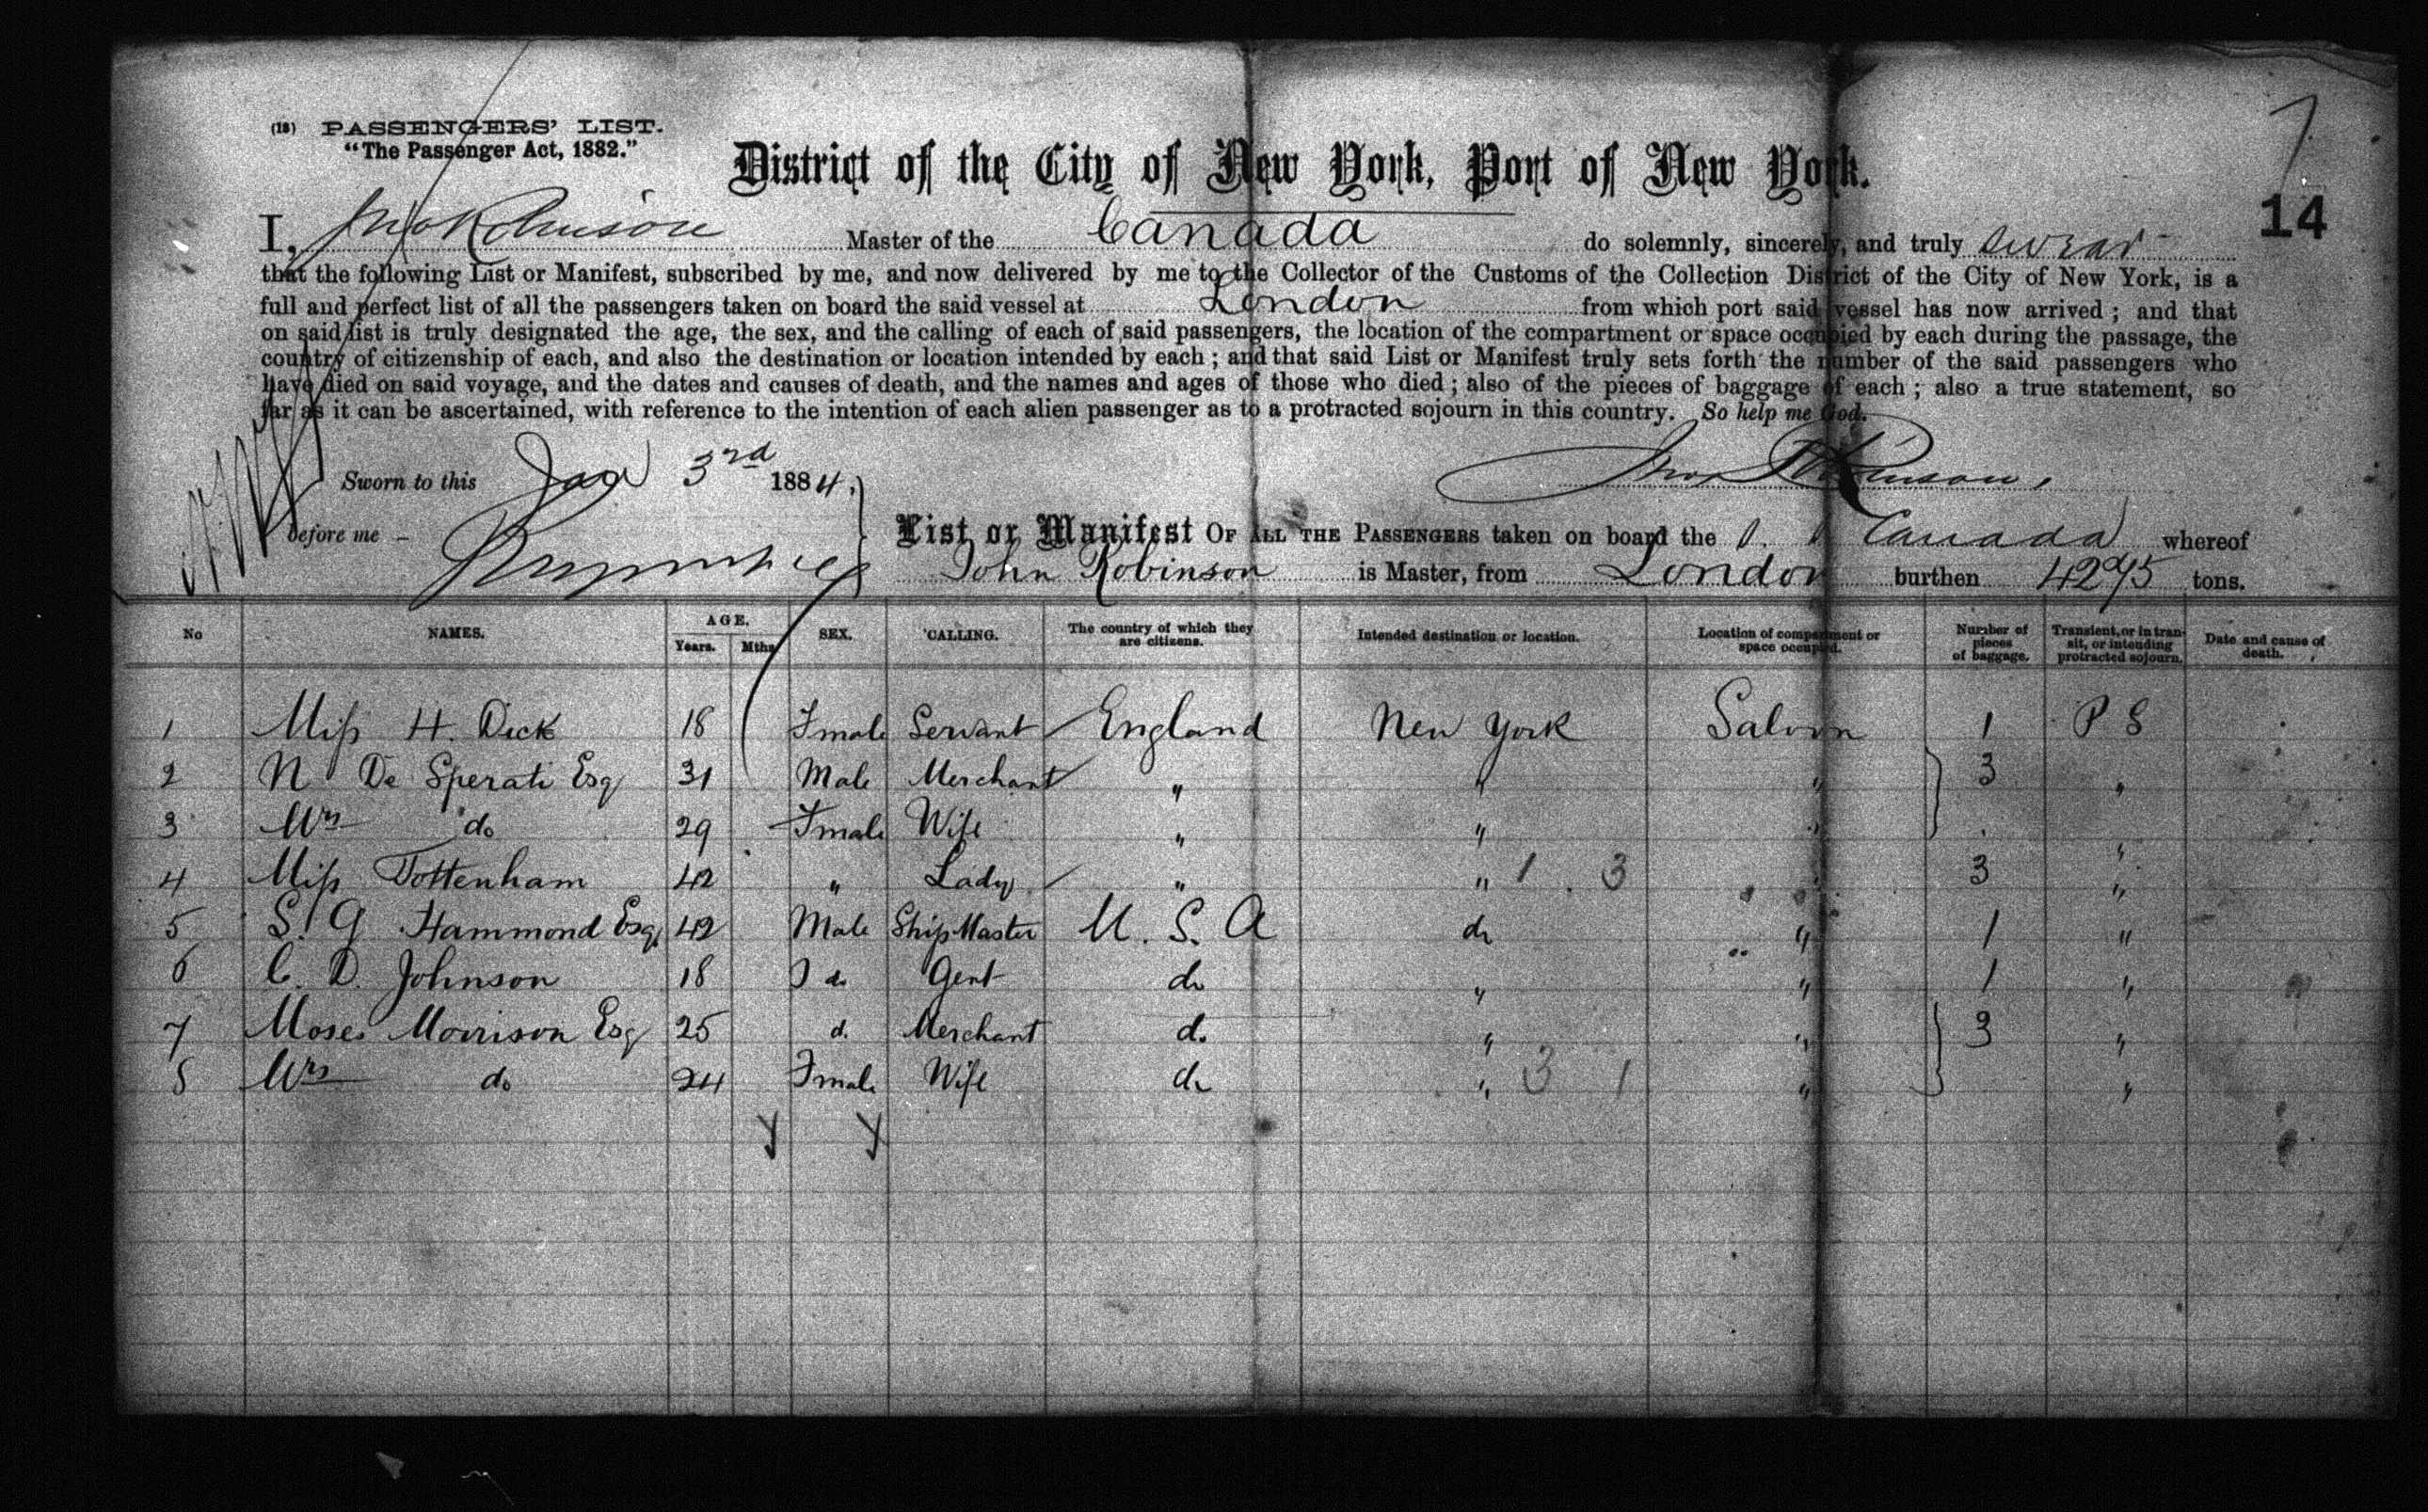 (18) PASSENGERS' LIST.
"The Passenger Act, 1882."
District of the City of New York, Port of New York.
7
14
I, Jno Robinson Master of the Canada do solemnly, sincerely, and truly swear
that the following List or Manifest, subscribed by me, and now delivered by me to the Collector of the Customs of the Collection District of the City of New York, is a
full and perfect list of all the passengers taken on board the said vessel at London from which port said vessel has now arrived; and that
on said list is truly designated the age, the sex, and the calling of each of said passengers, the location of the compartment or space occupied by each during the passage, the
country of citizenship of each, and also the destination or location intended by each; and that said List or Manifest truly sets forth the number of the said passengers who
have died on said voyage, and the dates and causes of death, and the names and ages of those who died; also of the pieces of baggage of each; also a true statement, so
far as it can be ascertained, with reference to the intention of each alien passenger as to a protracted sojourn in this country. So help me God.
Sworn to this Jan 3rd 1884, Jno Robinson.
before me
List or Manifest OF ALL THE PASSENGERS taken on board the S. S. Canada whereof
John Robinson is Master, from London burthen 4275 tons.
No NAMES. AGE. Years. Mths SEX. CALLING. The country of which they are citizens. Intended destination or location. Location of compartment or space occupied. Number of pieces of baggage. Transient, or in transit, or intending protracted sojourn. Date and cause of death.
1 Miss H. Dick 18 Fmale Servant England New York Saloon 1 P S
2 N De Sperati Esq 31 Male Merchant " " " 3 "
3 Mrs do 29 Fmale Wife " " " "
4 Miss Tottenham 42 " Lady " " 1 3 " 3 "
5 S. G Hammond Esq 42 Male Ship Master U. S. A do " 1 "
6 C. D. Johnson 18 do Gent do " " 1 "
7 Moses Morrison Esq 25 d. Merchant do " " 3 "
8 Mrs do 24 Fmale Wife do " 3 1 " "